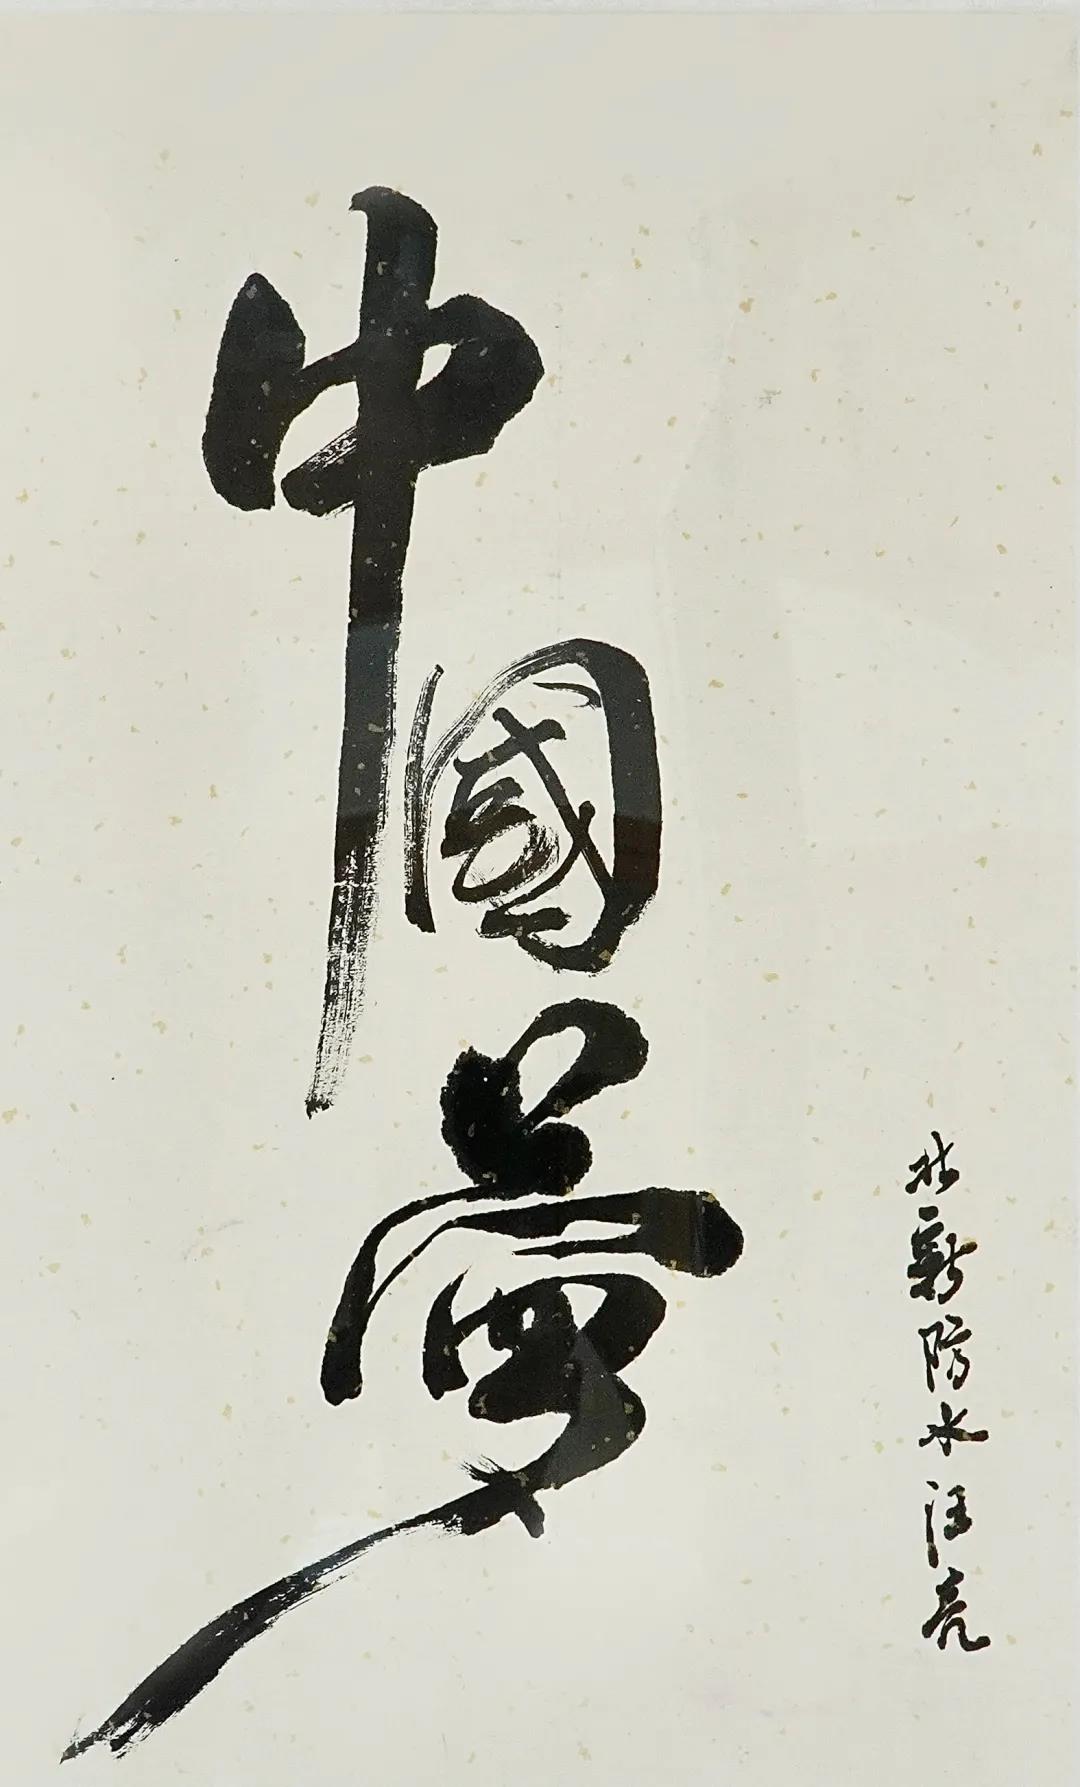 中國夢
北新防水汪亮